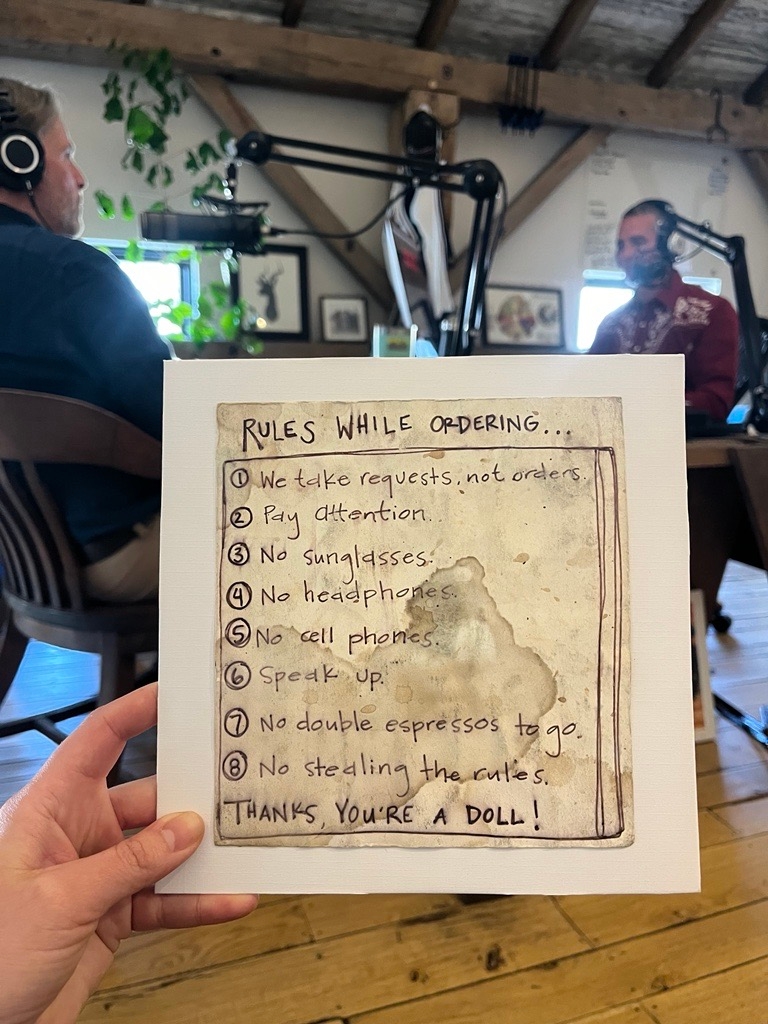 RULES WHILE ORDERING...
① We take requests, not orders.
② Pay attention.
③ No sunglasses.
④ No headphones.
⑤ No cell phones.
⑥ Speak up.
⑦ No double espressos to go.
⑧ No stealing the rules.
THANKS, YOU'RE A DOLL!